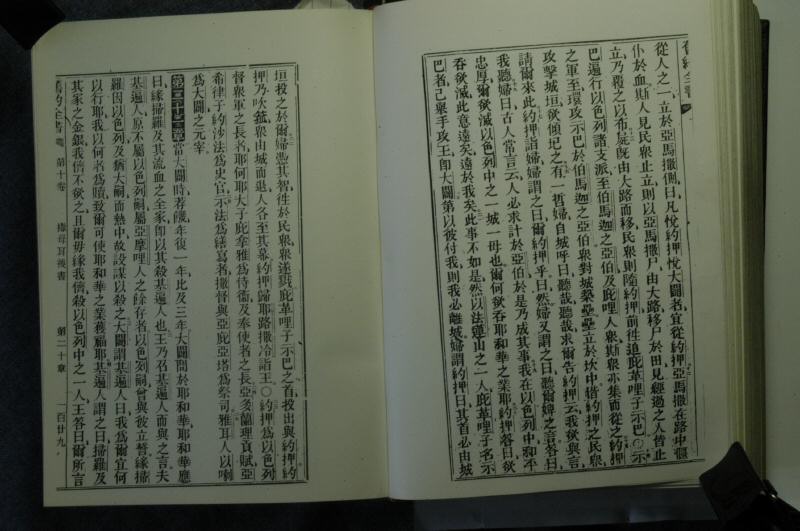 舊約全書
從人之一、立於亞馬撒側曰、凡悅約押、悅大闢者、宜從約押、亞馬撒在路中
仆於血、斯人見民衆止立、則以亞馬撒尸、由大路移尸於田、見經過之人皆止
立、乃覆之以布、屍既由大路而移、民衆則隨約押前往、追庇革哩子示巴、○示
巴遍行以色列諸支派、至伯馬迦之亞伯、及庇哩人衆、斯衆亦集而從之、約押
之軍至、環攻示巴於伯馬迦之亞伯、衆對城築壘、壘立於坎中、偕約押之民衆
攻擊城垣、欲傾圮之、有一哲婦、自城呼曰、聽哉聽哉、求爾告約押云、我欲與言
請爾來此、約押詣婦、婦謂之曰、爾約押乎、曰然、婦又謂之曰、聽爾婢之言、答曰
我聽、婦曰、古人常言云、人必求計於亞伯、於是乃成其事、我在以色列中、和平
忠厚、爾欲滅以色列中之一城一母也、爾何欲吞耶和華之業耶、約押答曰、欲
吞欲滅、此意遠矣、遠於我矣、此事不如是、然以法蓮山之一人、庇革哩子、名示
巴者、已舉手攻王、卽大闢、第以彼付我、則我必離城、婦謂約押曰、其首必由城
垣投之於爾、婦憑其智、往於民衆、衆遂戮庇革哩子示巴之首、投出與約押、約
押乃吹箛、衆由城而退、人各至其幕、約押歸耶路撒冷詣王、○約押爲以色列
督衆軍之長、耶何耶大子庇拿雅、爲侍衞及奉使者之長、亞多蘭理貢賦、亞
希律子約沙法爲史官、示法爲繕寫者、撒督與亞庇亞塔爲祭司、雅耳人以喇
爲大闢之元宰
第二十一章 當大闢時、荐饑年復一年、比及三年、大闢問於耶和華、耶和華應
曰、緣掃羅、及其流血之全家、卽以其殺基遍人也、王乃召基遍人而與之言、夫
基遍人原不屬以色列嗣、屬亞摩哩人之餘存者、以色列嗣曾與彼立誓、緣掃
羅因以色列及猶大嗣而熱中、故設謀以殺之、大闢謂基遍人曰、我爲爾宜何
以行耶、我以何者爲贖、致爾可使耶和華之業獲福耶、基遍人謂之曰、掃羅及
其家之金銀、我儕不欲之、且爾毋緣我儕、殺以色列中之一人、王答曰、爾所言
舊約全書 第十卷 撒母耳後書 第二十章 一百廿九